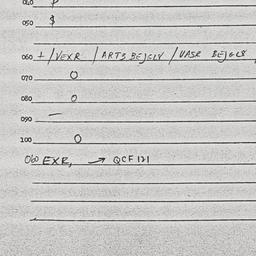 040 $
050 $
060 I / VEXR / ARTS BEJGLY / VASR BEJGLY
070 O
080 O
090 —
100 O
060 EXR, → QCF 121